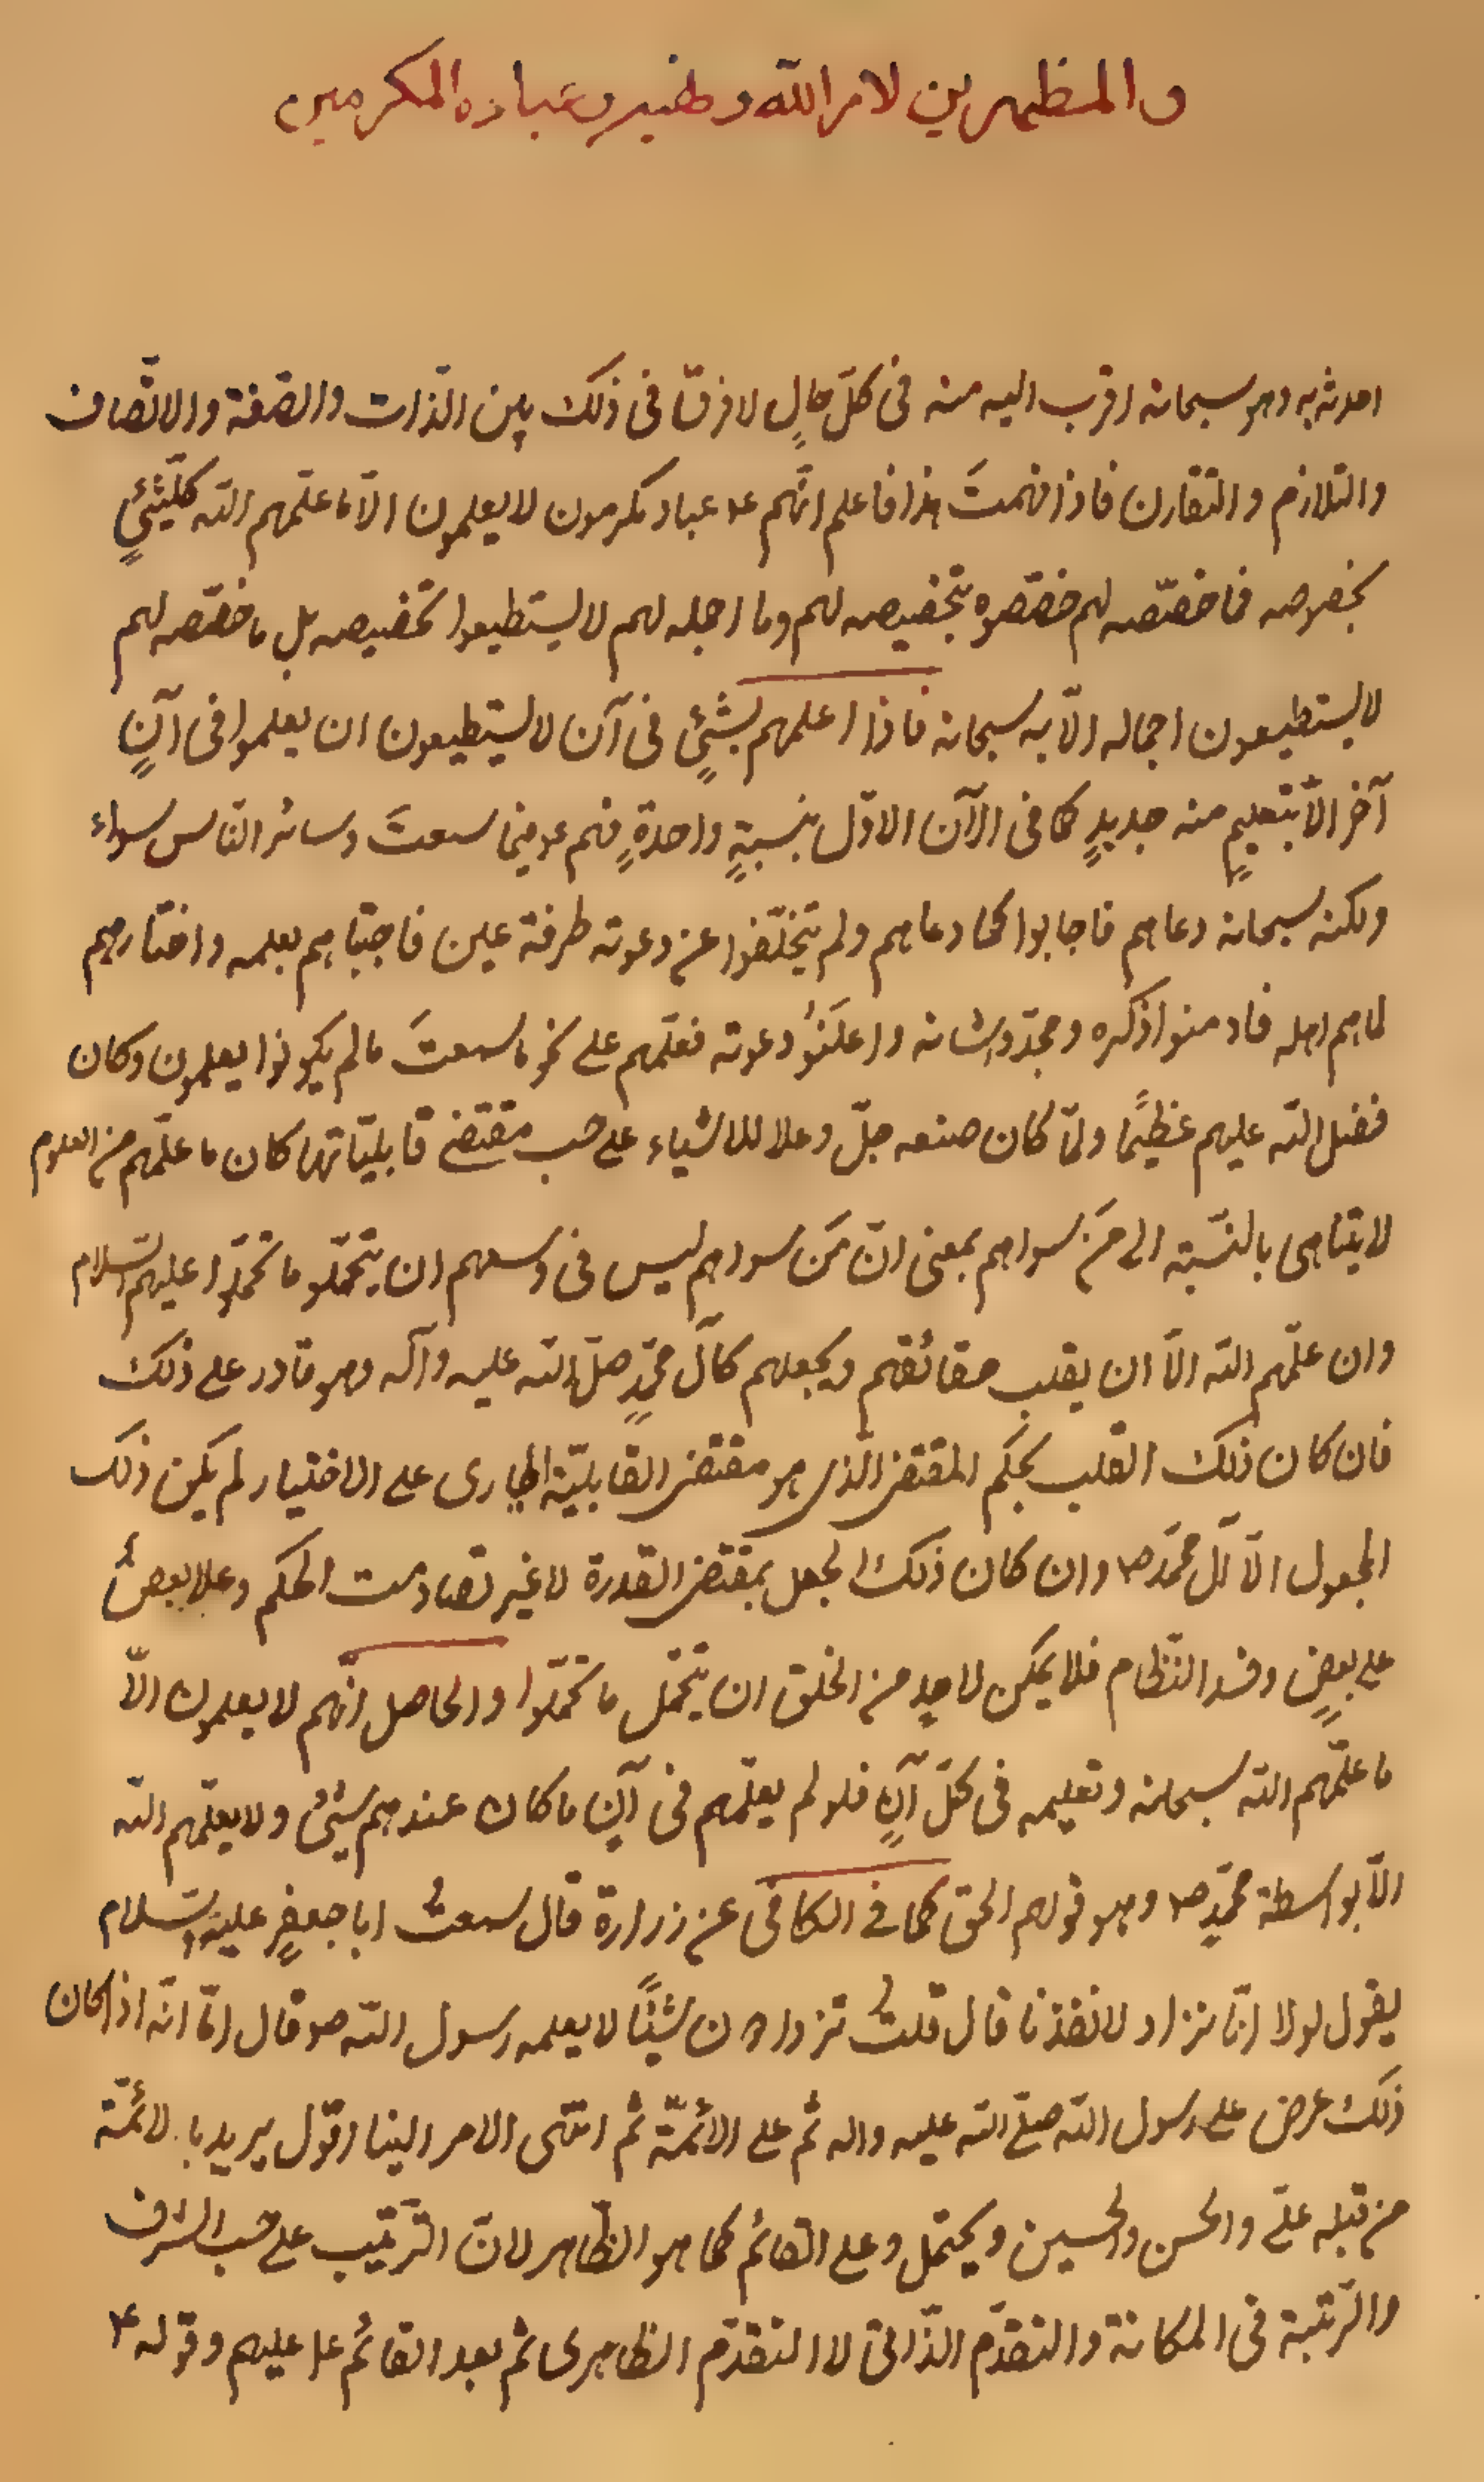 والمظهرين لامر الله ونهيه وعباده المكرمين
احدثه به وهو سبحانه اقرب اليه منه فى كلّ حالٍ لا فرق فى ذلك بين الذّات والصّفة والاتّصاف
والتلازم والتقارن فاذا فهمتَ هذا فاعلم انّهم ع عباد مكرمون لا يعلمون الّا ما علّمهم الله كلّ شئٍ
بخصوصه فما خصّصه لهم خصّصوه بتخصيصه لهم وما اجمله لهم لا يستطيعوا تخصيصه بل ما خصّصه لهم
لا يستطيعون اجماله الّا به سبحانه فاذا اعلمهم بشئٍ فى آن لا يستطيعون ان يعلموا فى آنٍ
آخر الّا بتعليمٍ منه جديدٍ كما فى الآن الاوّل بنسبةٍ واحدةٍ فهم ع فيما سمعتَ وسائر النّاس سواء
ولكنه سبحانه دعاهم فاجابوا كما دعاهم ولم يتخلّفوا عن دعوته طرفة عين فاجتباهم بعلمه واختارهم
لما هم اهله فادمنوا ذكره ومجدّوا شانه واعلَنُوا دعوته فعلّمهم على نحو ما سمعتَ ما لم يكونوا يعلمون وكان
فضل الله عليهم عظيمًا ولمّا كان صنعه جلّ وعلا للاشياء على حسب مقتضى قابليّاتها كان ما علّمهم من العلوم
لا يتناهى بالنّسبة الى مَن سواهم بمعنى انّ مَن سواهم ليس فى وسعهم ان يتحمّلو ما تحمّلوا عليهم السّلام
وان علّمهم الله الّا ان يقلب حقائقهم ويجعلهم كآل محمّدٍ صلّى الله عليه وآله وهو قادر على ذلك
فان كان ذلك القلب بحكم المقتضى الّذى هو مقتضى القابليّة الجارى على الاختيار لم يكن ذلك
المجعول الّا آل محمّد ص وان كان ذلك الجعل بمقتضى القدرة لا غير تصادمت الحكم وعلا بعضٌ
على بعضٍ وفسد النّظام فلا يمكن لاحدٍ من الخلق ان يتحمّل ما تحمّلوا والحاصل انّهم لا يعلمون الّا
ما علّمهم الله سبحانه وتعليمه فى كلّ آنٍ فلو لم يعلّمهم فى آنٍ ما كان عندهم شئ ولا يعلّمهم الله
الّا بواسطة محمّدٍ ص وهو قولهم الحق كما فى الكافى عن زرارة قال سمعتُ ابا جعفرٍ عليه السّلام
يقول لولا انّا نزاد لانفذنا قال قلتُ تزدادون شيئًا لا يعلمه رسول الله ص قال امّا انّه اذا كان
ذلك عرض على رسول الله صلّى الله عليه واله ثم على الائمّة ثم انتهى الامر الينا اقول يريد بالائمّة
من قبله علىّ والحسن والحسين ويحتمل وعلى القائم كما هو الظّاهر لانّ التّرتيب على حسب الشرف
والرّتبة فى المكانة والتقدّم الذّاتى لا التقدّم الظاهرى ثم بعد القائم ع عليهم وقوله ع